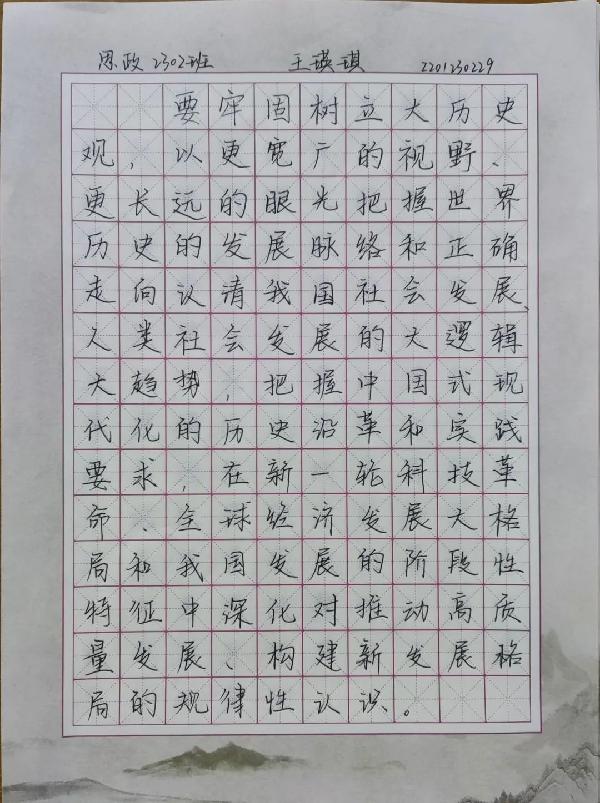 思政2302班 王瑛琪 2201230229
要牢固树立大历史
观，以更宽广的视野、
更长远的眼光把握世界
历史的发展脉络和正确
走向认清我国社会发展、
人类社会发展的大逻辑
大趋势，把握中国式现
代化的历史沿革和实践
要求，在新一轮科技革
命、全球经济发展大格
局和我国发展的阶段性
特征中深化对推动高质
量发展、构建新发展格
局的规律性认识。